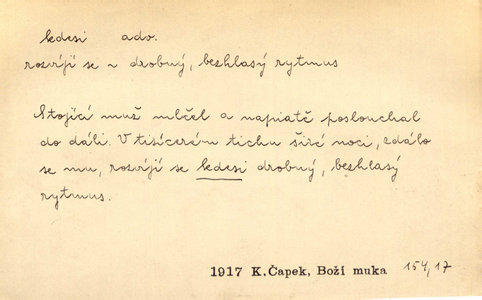 kdesi adv.
rozvíjí se ~ drobný, bezhlasý rytmus
Stojící muž mlčel a napiatě poslouchal
do dáli. V tisícerém tichu širé noci, zdálo
se mu, rozvíjí se kdesi drobný, bezhlasý
rytmus.
1917 K.Čapek, Boží muka 154,17